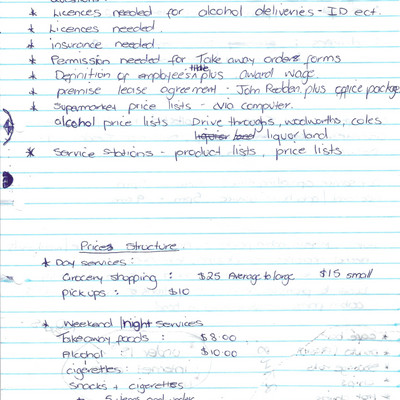 * Licences needed for alcohol deliveries - ID ect.
* Licences needed.
* insurance needed.
* Permission needed for Take away orders forms
* Definition of employees title plus award wage.
* premise lease agreement - John Redden. plus office package
* Supermarket price lists - via computer.
alcohol price lists - Drive throughs, woolworths, coles
liquor land
* Service stations - product lists, price lists
Prices Structure.
* Day services:
Grocery shopping : $25 Average to large $15 small
Pick ups : $10
* Weekend / night services
Takeaway foods : $8.00
Alcohol : $10.00
cigerettes :
Snacks + cigerettes